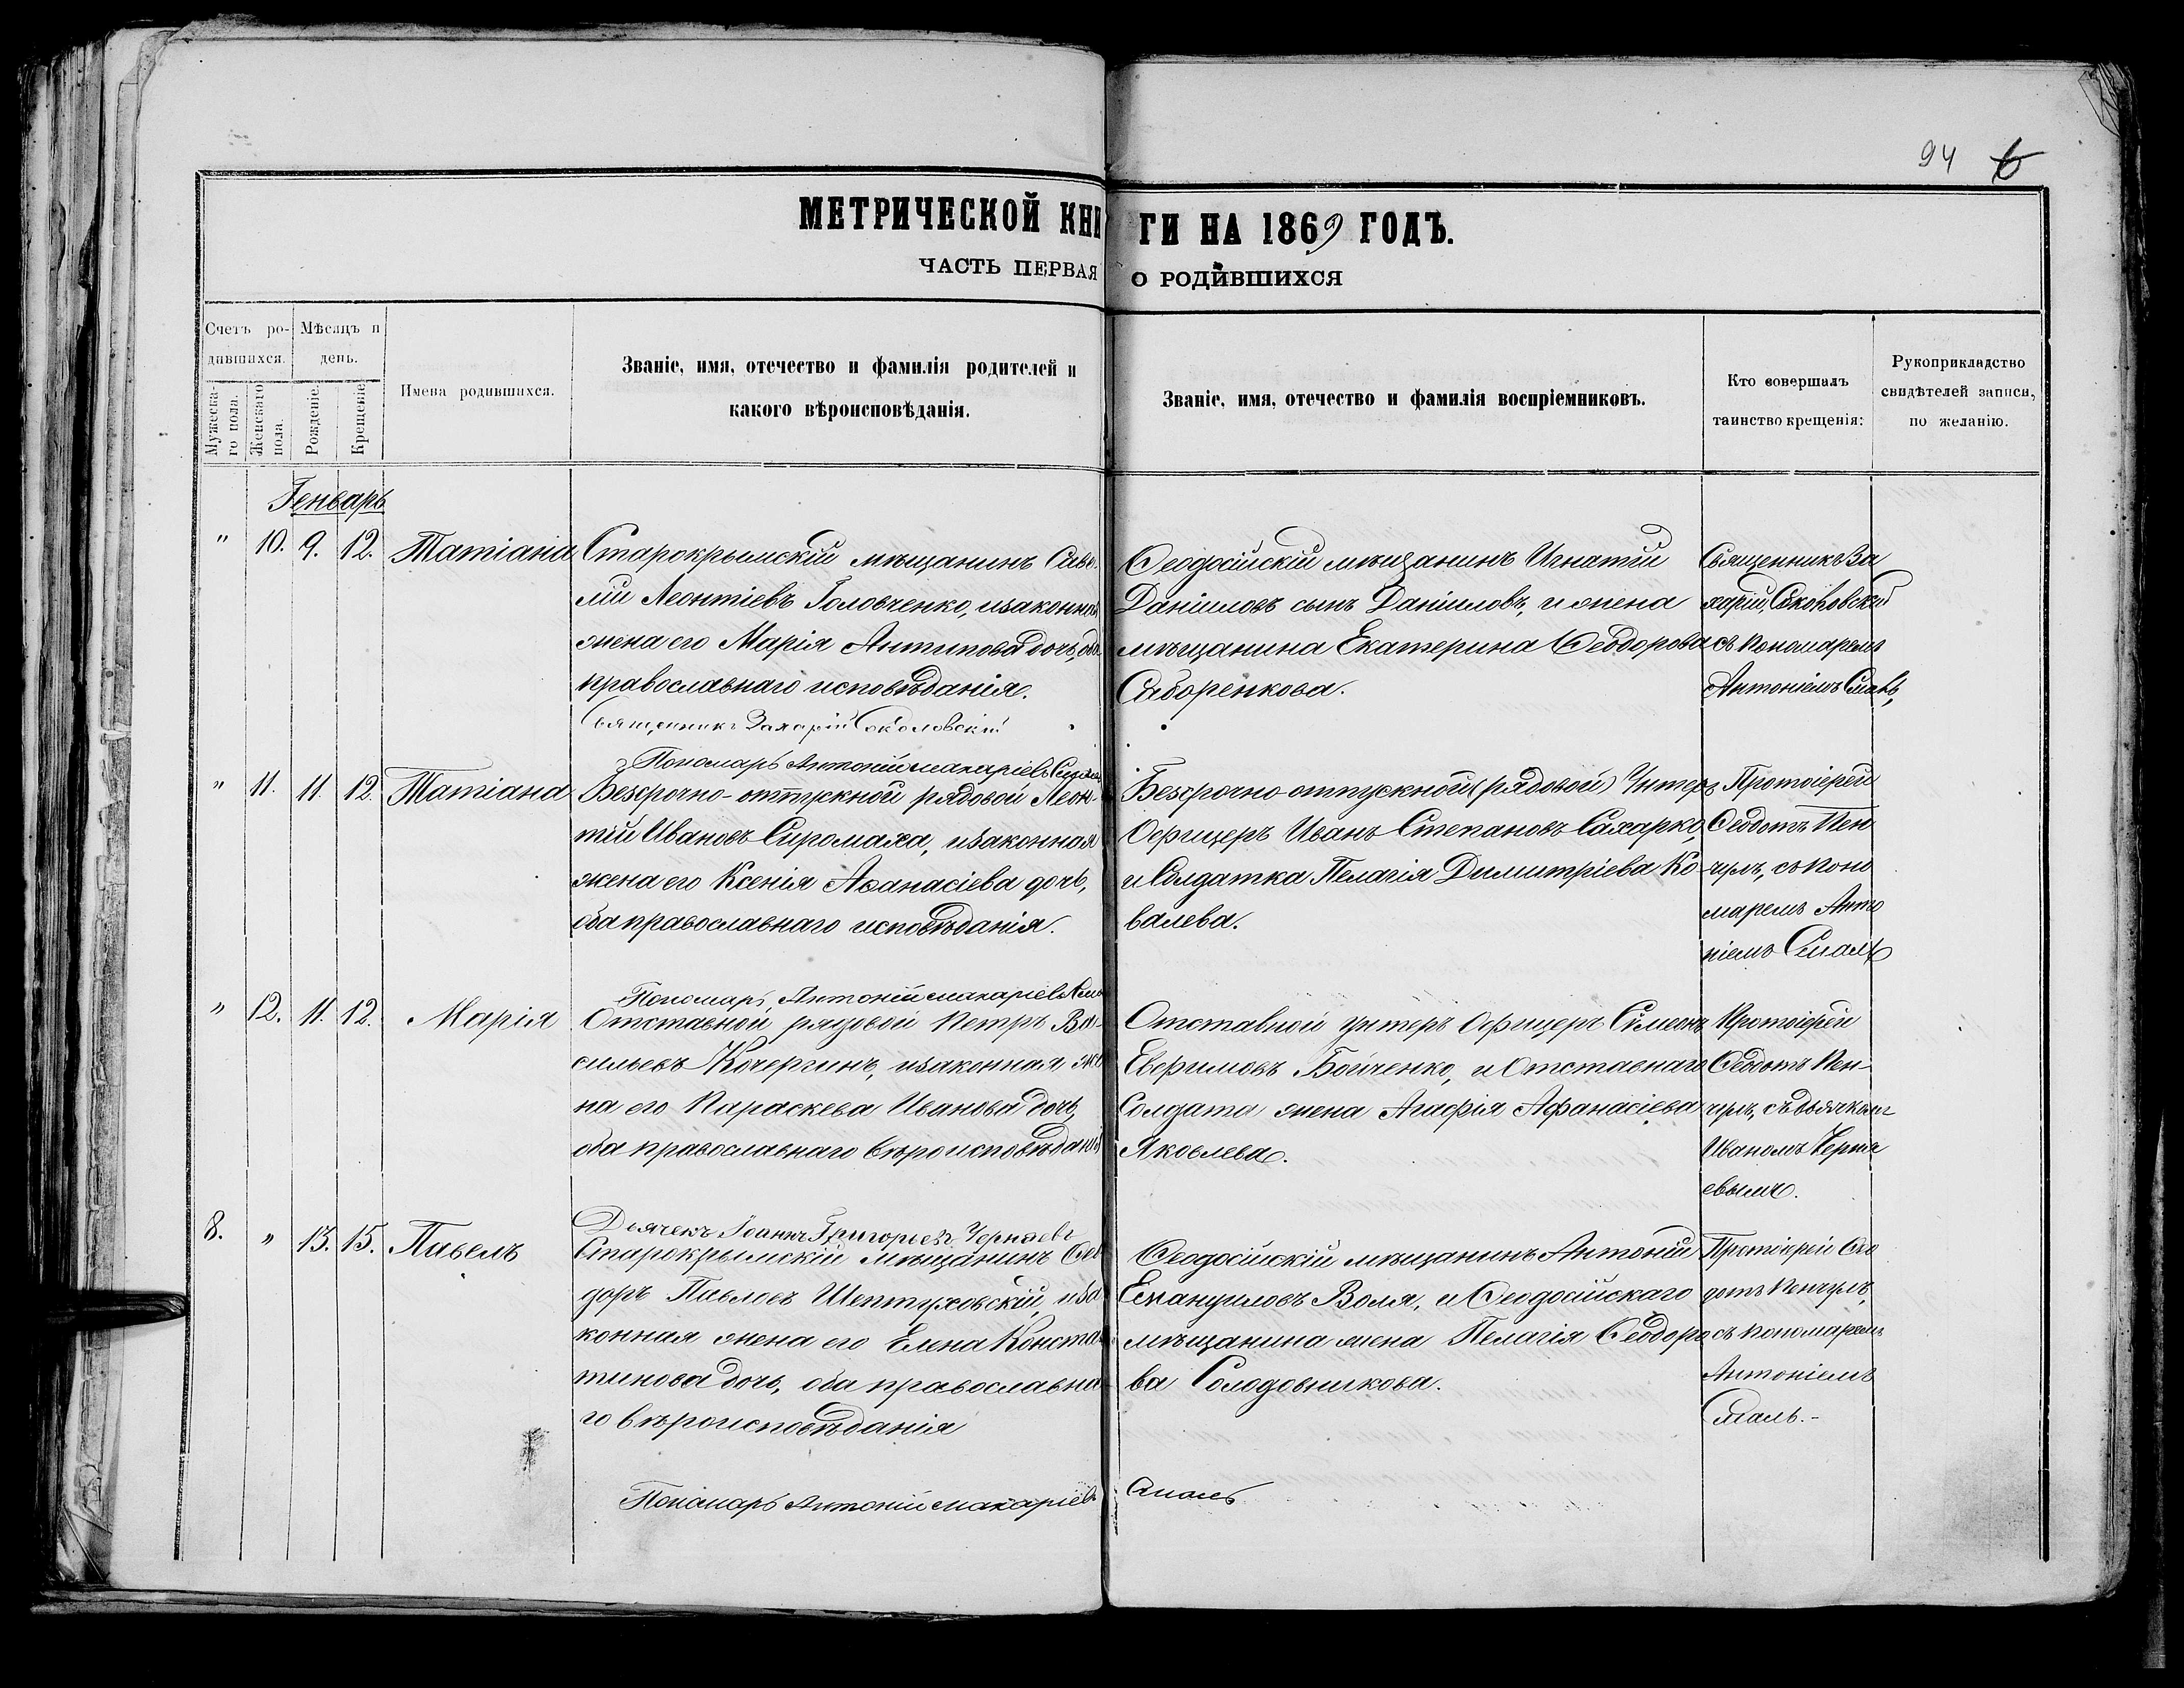 94
МЕТРИЧЕСКОЙ КНИГИ НА 1869 ГОДЪ.
ЧАСТЬ ПЕРВАЯ О РОДИВШИХСЯ
Счетъ ро-
дившихся.
Мужеска-
го пола.
Женскаго
пола.
Мѣсяцъ и
день.
Рожденіе.
Крещеніе.
Имена родившихся.
Званіе, имя, отечество и фамилія родителей и
какого вѣроисповѣданія.
Званіе, имя, отечество и фамилія воспріемниковъ.
Кто совершалъ
таинство крещенія:
Рукоприкладство
свидѣтелей записи,
по желанію.
Генварь
" 10. 9. 12. Татіана
Старокрымскій мѣщанинъ Саве-
лій Леонтіевъ Головченко, изаконная
жена его Марія Антипова дочь, оба
православнаго исповѣданія.
Священникъ Захарій Соколовскій
Пономарь Антоній Макаріевъ
Ѳеодосійскій мѣщанинъ Игнатій
Даніиловъ сынъ Даніиловъ, и жена
мѣщанина Екатерина Ѳеодорова
Сидоренкова.
Священникъ За
харій Соколовскій
съ пономаремъ
Антоніемъ
" 11. 11. 12. Татіана
Безсрочно-отпускной рядовой Леон-
тій Ивановъ Сиромаха, изаконная
жена его Ксенія Аѳанасіева дочь,
оба православнаго исповѣданія.
Пономарь Антоній Макаріевъ
Безсрочно-отпускной (рядовой) Унтеръ
Офицеръ Иванъ Степановъ Сахарко,
и Солдатка Пелагія Димитріева Ко-
валева.
Протоіерей
Ѳеодотъ Пен
чулъ, съ поно
маремъ Анто
ніемъ Смаль
" 12. 11. 12. Марія
Отставной рядовой Петръ Ва-
сильевъ Кочергинъ, изаконная же
на его Параскева Иванова дочь,
оба православнаго вѣроисповѣданія
Дьячекъ Іоаннъ Григорьевъ Черняевъ
Отставной унтеръ Офицеръ Симеонъ
Евфимовъ Бойченко, и Отставнаго
Солдата жена Агафія Афанасіева
Яковлева.
Протоіерей
Ѳеодотъ Пен-
чулъ, съ дьячкомъ
Иваномъ Черня
евымъ.
8. " 13. 15. Павелъ
Старокрымскій мѣщанинъ Ѳео
доръ Павловъ Шептуховскій, иза
конная жена его Елена Констан
тинова дочь, оба православна
го вѣроисповѣданія
Пономарь Антоній Макаріевъ Смаль
Ѳеодосійскій мѣщанинъ Антоній
Емануиловъ Воля, и Ѳеодосійскаго
мѣщанина жена Пелагія Ѳеодоро
ва Солодовникова.
Протоіерей Ѳео
дотъ Пенчулъ,
съ пономаремъ
Антоніемъ
Смаль.-